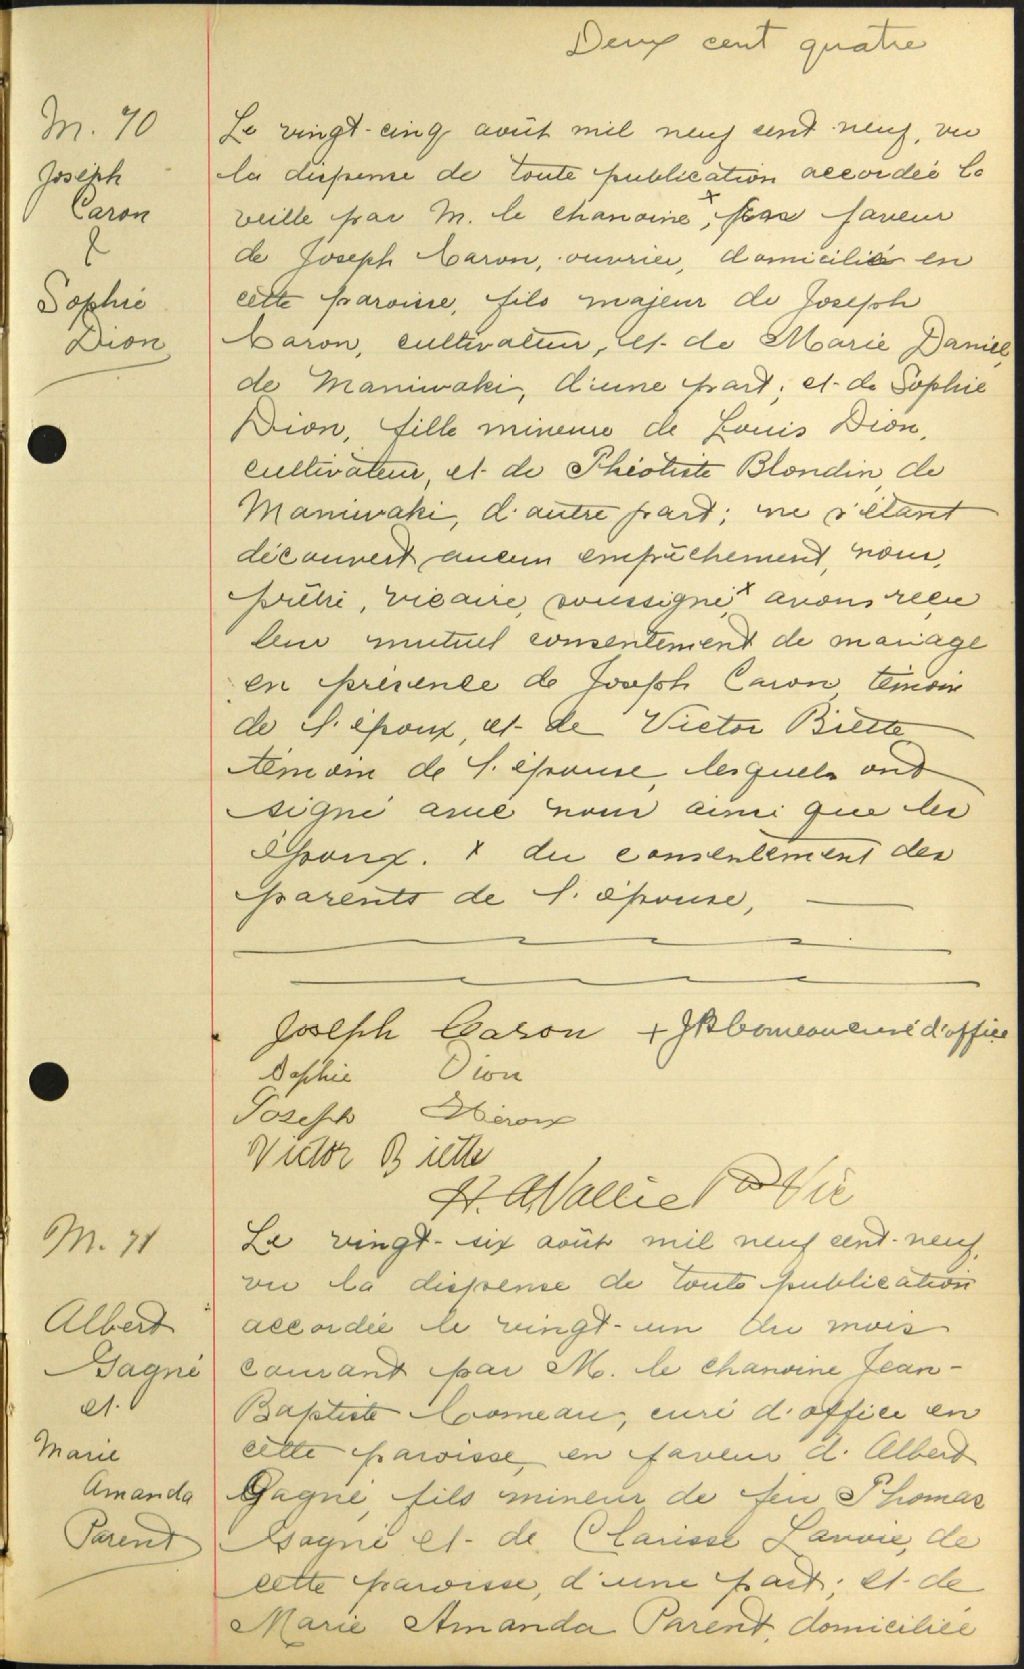 Deux cent quatre
M. 70
Joseph
Caron
&
Sophie
Dion
Le vingt-cinq août mil neuf cent-neuf, vu
la dispense de toute publication accordée la
veille par M. le chanoine x, en faveur
de Joseph Caron, ouvrier, domicilié en
cette paroisse, fils majeur de Joseph
Caron, cultivateur, et de Marie Daniel,
de Maniwaki, d'une part; et de Sophie
Dion, fille mineure de Louis Dion,
cultivateur, et de Philotiste Blondin, de
Maniwaki, d'autre part; ne s'étant
découvert aucun empêchement, nous,
prêtre, vicaire, soussigné,x avons reçu
leur mutuel consentement de mariage
en présence de Joseph Caron, témoin
de l'époux, et de Victor Biette
témoin de l'épouse, lesquels ont
signé avec nous ainsi que les
époux. x du consentement des
parents de l'épouse,
Joseph Caron + J B Comeau curé d'office
Sophie Dion
Joseph Héroux
Victor Biette
H. A. Vallée Ptre Vic
M. 71
Albert
Gagné
et
Marie
Amanda
Parent
Le vingt-six août mil neuf cent-neuf,
vu la dispense de toute publication
accordée le vingt-un du mois
courant par M. le chanoine Jean-
Baptiste Comeau, curé d'office en
cette paroisse, en faveur d'Albert
Gagné, fils mineur de feu Thomas
Gagné et de Clarisse Lavoie, de
cette paroisse, d'une part; et de
Marie Amanda Parent, domiciliée